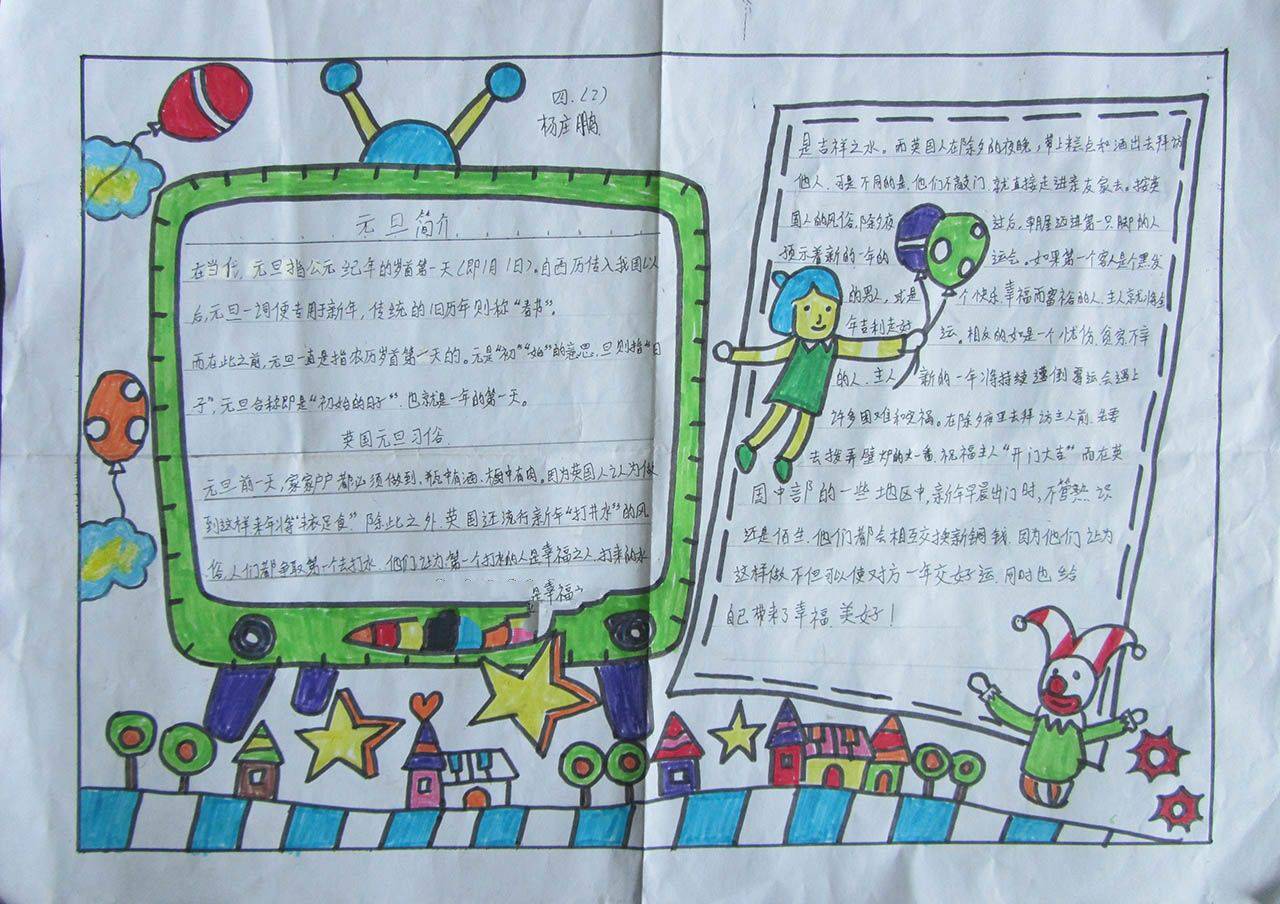 四.(2)
杨庄鹏
元旦简介
在当代，元旦指公元纪年的岁首第一天(即1月1日)。自西历传入我国以
后，元旦一词便专用于新年，传统的旧历年则称"春节"。
而在此之前，元旦一直是指农历岁首第一天的。元是"初""始"的意思，旦则指"日
子"，元旦合称即是"初始的日子"，也就是一年的第一天。
英国元旦习俗
元旦前一天，家家户户都必须做到，瓶中有酒、橱中有肉。因为英国人认为做
到这样来年将"丰衣足食"除此之外，英国还流行新年"打井水"的风
俗，人们都争取第一个去打水，他们认为第一个打水的人是幸福之人，打来的水
是幸福
是吉祥之水。而英国人在除夕的夜晚，带上糕点和酒出去拜访
他人，可是不同的是，他们不敲门，就直接走进亲友家去。按英
国人的风俗，除夕夜 过后，朝屋迈进第一只脚的人
预示着新的一年的 运会。如果第一个客人是个黑发
的男人，或是 个快乐、幸福而富裕的人，主人就将全
年吉利走好 运。相反的如是一个忧伤、贫穷不幸
的人，主人 新的一年将持续遭倒霉运会遇上
许多困难和灾祸。在除夕夜里去拜访主人前，先要
去拨弄壁炉的火一番，祝福主人"开门大吉"而在英
国中部的一些地区中，新年早晨出门时，不管熟识
还是陌生，他们都会相互交换新铜钱，因为他们认为
这样做不但可以使对方一年交好运，同时也给
自己带来了幸福、美好！